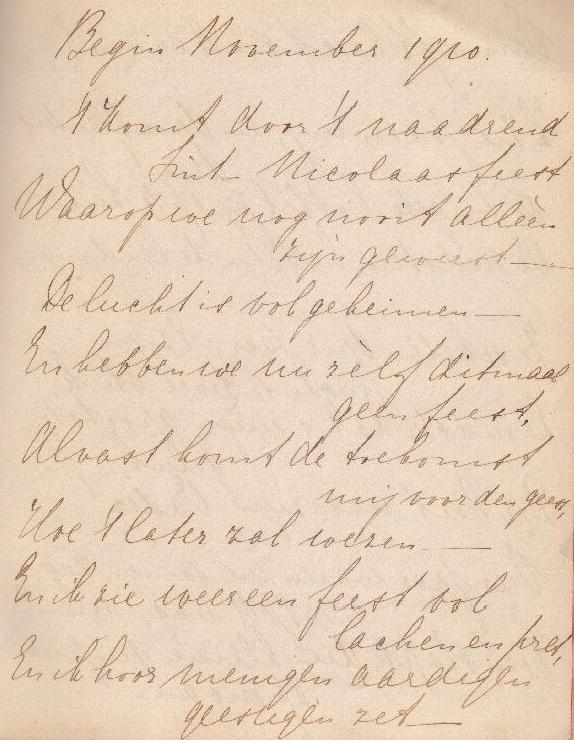 Begin November 1910.
't Komt door 't naadrend
Sint Nicolaasfeest
Waarop we nog nooit alléén
zijn geweest —
De lucht is vol geheimen —
En hebben we nu zèlf ditmaal
geen feest,
Alvast komt de toekomst
mij voor den geest,
Hoe 't later zal wezen —
En ik zie weer een feest vol
lachen en pret,
En ik hoor menigen aardigen
geestigen zet —